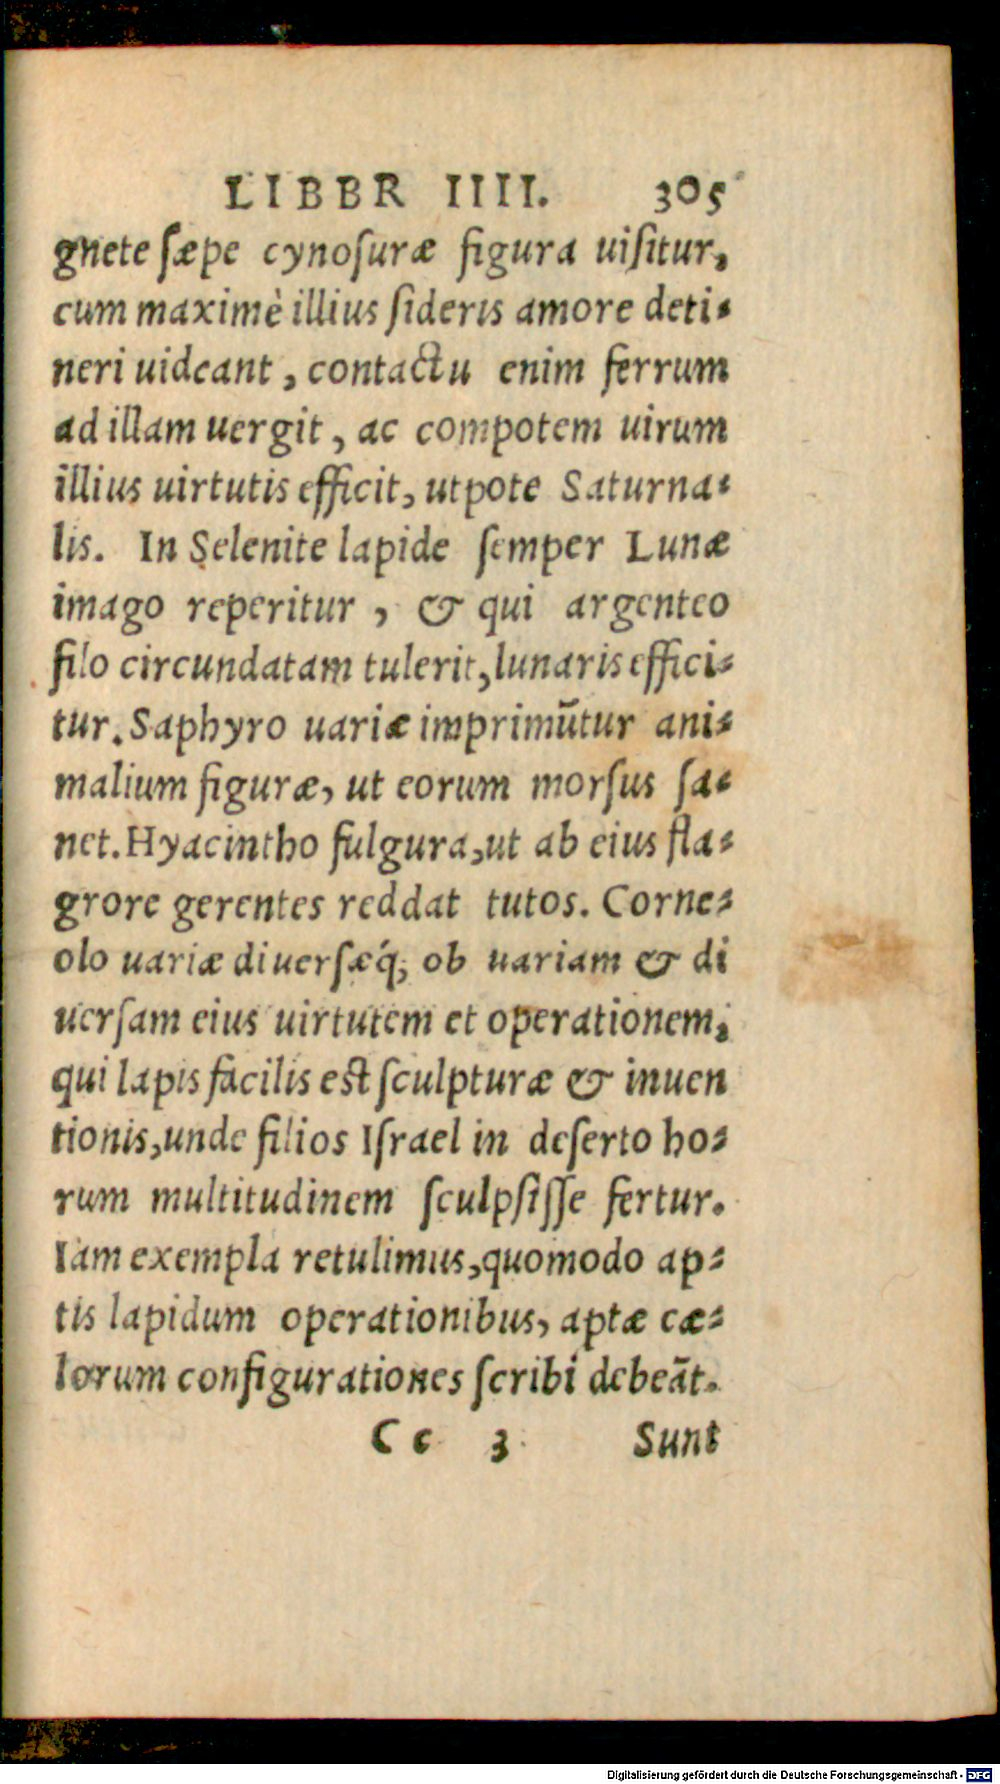 LIBBR IIII. 305
gnete sæpe cynosuræ figura uisitur,
cum maximè illius sideris amore deti-
neri uideant, contactu enim ferrum
ad illam uergit, ac compotem uirum
illius uirtutis efficit, utpote Saturna-
lis. In Selenite lapide semper Lunæ
imago reperitur, & qui argenteo
filo circundatam tulerit, lunaris effici-
tur. Saphyro uariæ imprimũtur ani-
malium figuræ, ut eorum morsus sa-
net. Hyacintho fulgura, ut ab eius fla-
grore gerentes reddat tutos. Corne-
olo uariæ diuersæq́; ob uariam & di
uersam eius uirtutem et operationem,
qui lapis facilis est sculpturæ & inuen
tionis, unde filios Israel in deserto ho-
rum multitudinem sculpsisse fertur.
Iam exempla retulimus, quomodo ap-
tis lapidum operationibus, aptæ cæ-
lorum configurationes scribi debeãt.
Cc 3 Sunt
Digitalisierung gefördert durch die Deutsche Forschungsgemeinschaft - DFG